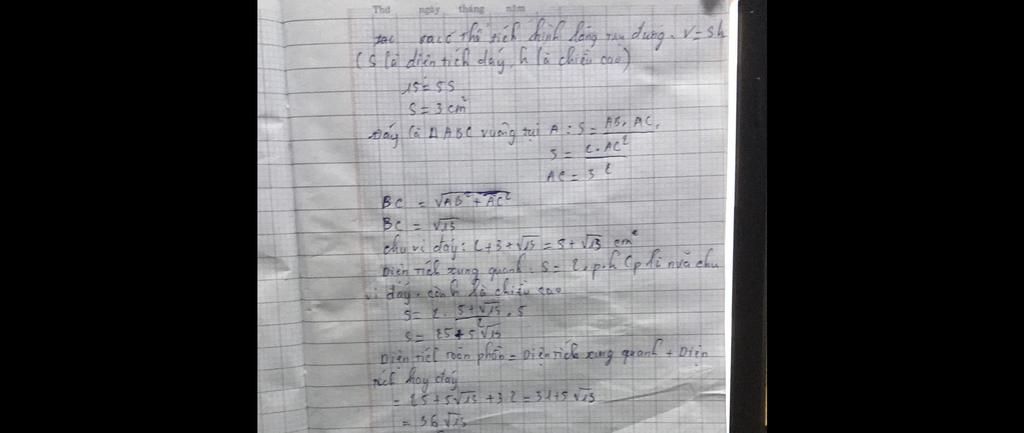 Thứ ngày tháng năm
Thể tích hình lăng trụ đứng. V = Sh
(S là diện tích đáy, h là chiều cao)
15 = 5S
S = 3 cm²
Đáy là ΔABC vuông tại A : S = AB. AC.
AC = 3
BC = √AB² + AC²
BC = √13
chu vi đáy: 2+3+√13 = 5+√13 cm
Diện tích xung quanh. S = 2.p.h (p là nửa chu
vi đáy. còn h là chiều cao
S = 2. 5+√13 / 2 . 5
S = 25+5√13
Diện tích toàn phần = Diện tích xung quanh + Diện
tích hay đáy
= 25+5√13 +3 2 = 31+5√13
= 36√13